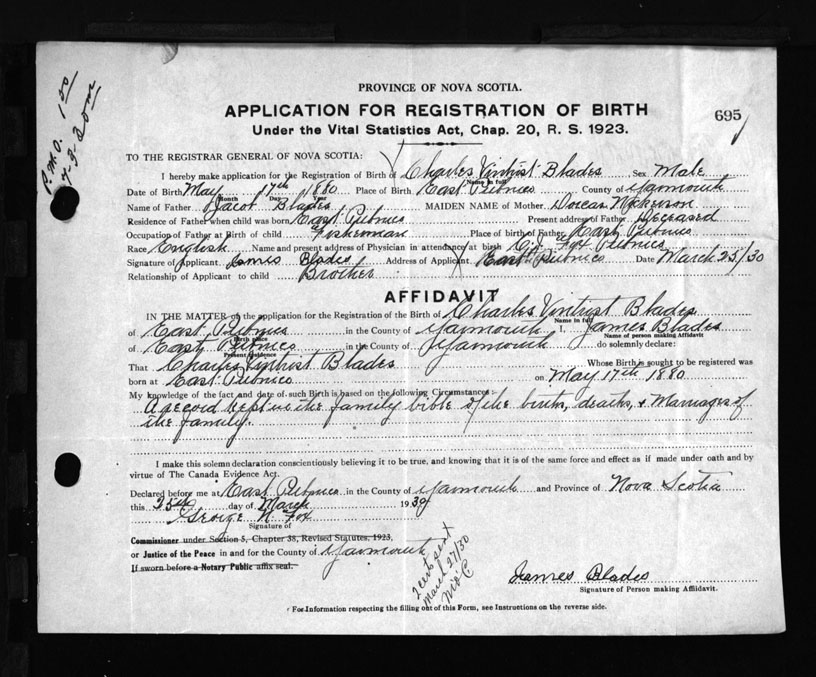 P.M.O. 1.50
7-3-30
PROVINCE OF NOVA SCOTIA.
APPLICATION FOR REGISTRATION OF BIRTH
695
Under the Vital Statistics Act, Chap. 20, R. S. 1923.
TO THE REGISTRAR GENERAL OF NOVA SCOTIA:
I hereby make application for the Registration of Birth of Charles Vintrist Blades Sex Male
Name in full
Date of Birth May 17th 1880 Place of Birth East Pubnico County of Yarmouth
Month Day Year
Name of Father Jacob Blades MAIDEN NAME of Mother Dorcas Nickerson
Residence of Father when child was born East Pubnico Present address of Father Deceased
Occupation of Father at Birth of child Fisherman Place of birth of Father East Pubnico
Race English Name and present address of Physician in attendance at birth Fox Pubnico
Signature of Applicant James Blades Address of Applicant East Pubnico Date March 25/30
Relationship of Applicant to child Brother
AFFIDAVIT
IN THE MATTER of the application for the Registration of the Birth of Charles Vintrist Blades
Name in full
of East Pubnico in the County of Yarmouth I, James Blades
Birth place Name of person making Affidavit
of East Pubnico in the County of Yarmouth do solemnly declare:
Present residence
That Charles Vintrist Blades Whose Birth is sought to be registered was
born at East Pubnico on May 17th 1880
My knowledge of the fact and date of such Birth is based on the following Circumstances:
A record kept in the family bible of the births, deaths, & Marriages of
the family.
I make this solemn declaration conscientiously believing it to be true, and knowing that it is of the same force and effect as if made under oath and by
virtue of The Canada Evidence Act.
Declared before me at East Pubnico in the County of Yarmouth and Province of Nova Scotia
this 25th day of March 1930
George N. Fox
Signature of
Commissioner under Section 5, Chapter 38, Revised Statutes, 1923,
or Justice of the Peace in and for the County of Yarmouth
If sworn before a Notary Public affix seal.
Cert sent
March 27/30
James Blades
Signature of Person making Affidavit.
For Information respecting the filling out of this Form, see Instructions on the reverse side.